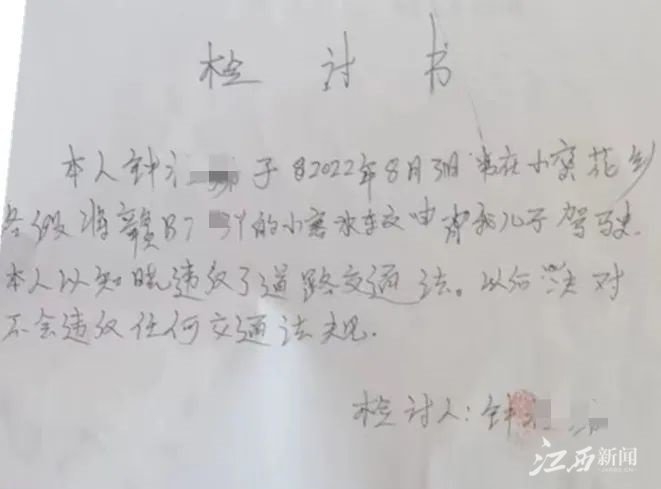 检讨书
本人钟 于2022年8月3日 在小 花乡
将赣B7 的小客 车交由 我儿子驾驶
本人以知晓违反了道路交通法。以后决对
不会违反任何交通法规.
检讨人:钟
江西新闻